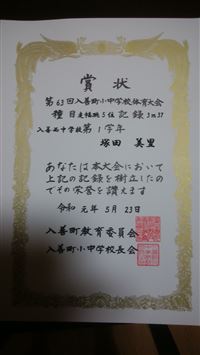 賞状
第63回入善町小中学校体育大会
種目走幅跳5位記録3m37
入善西中学校第1学年
塚田美里
あなたは本大会において
上記の記録を樹立したの
でその栄誉を讃えます
令和元年5月23日
入善町教育委員会
入善町小中学校長会